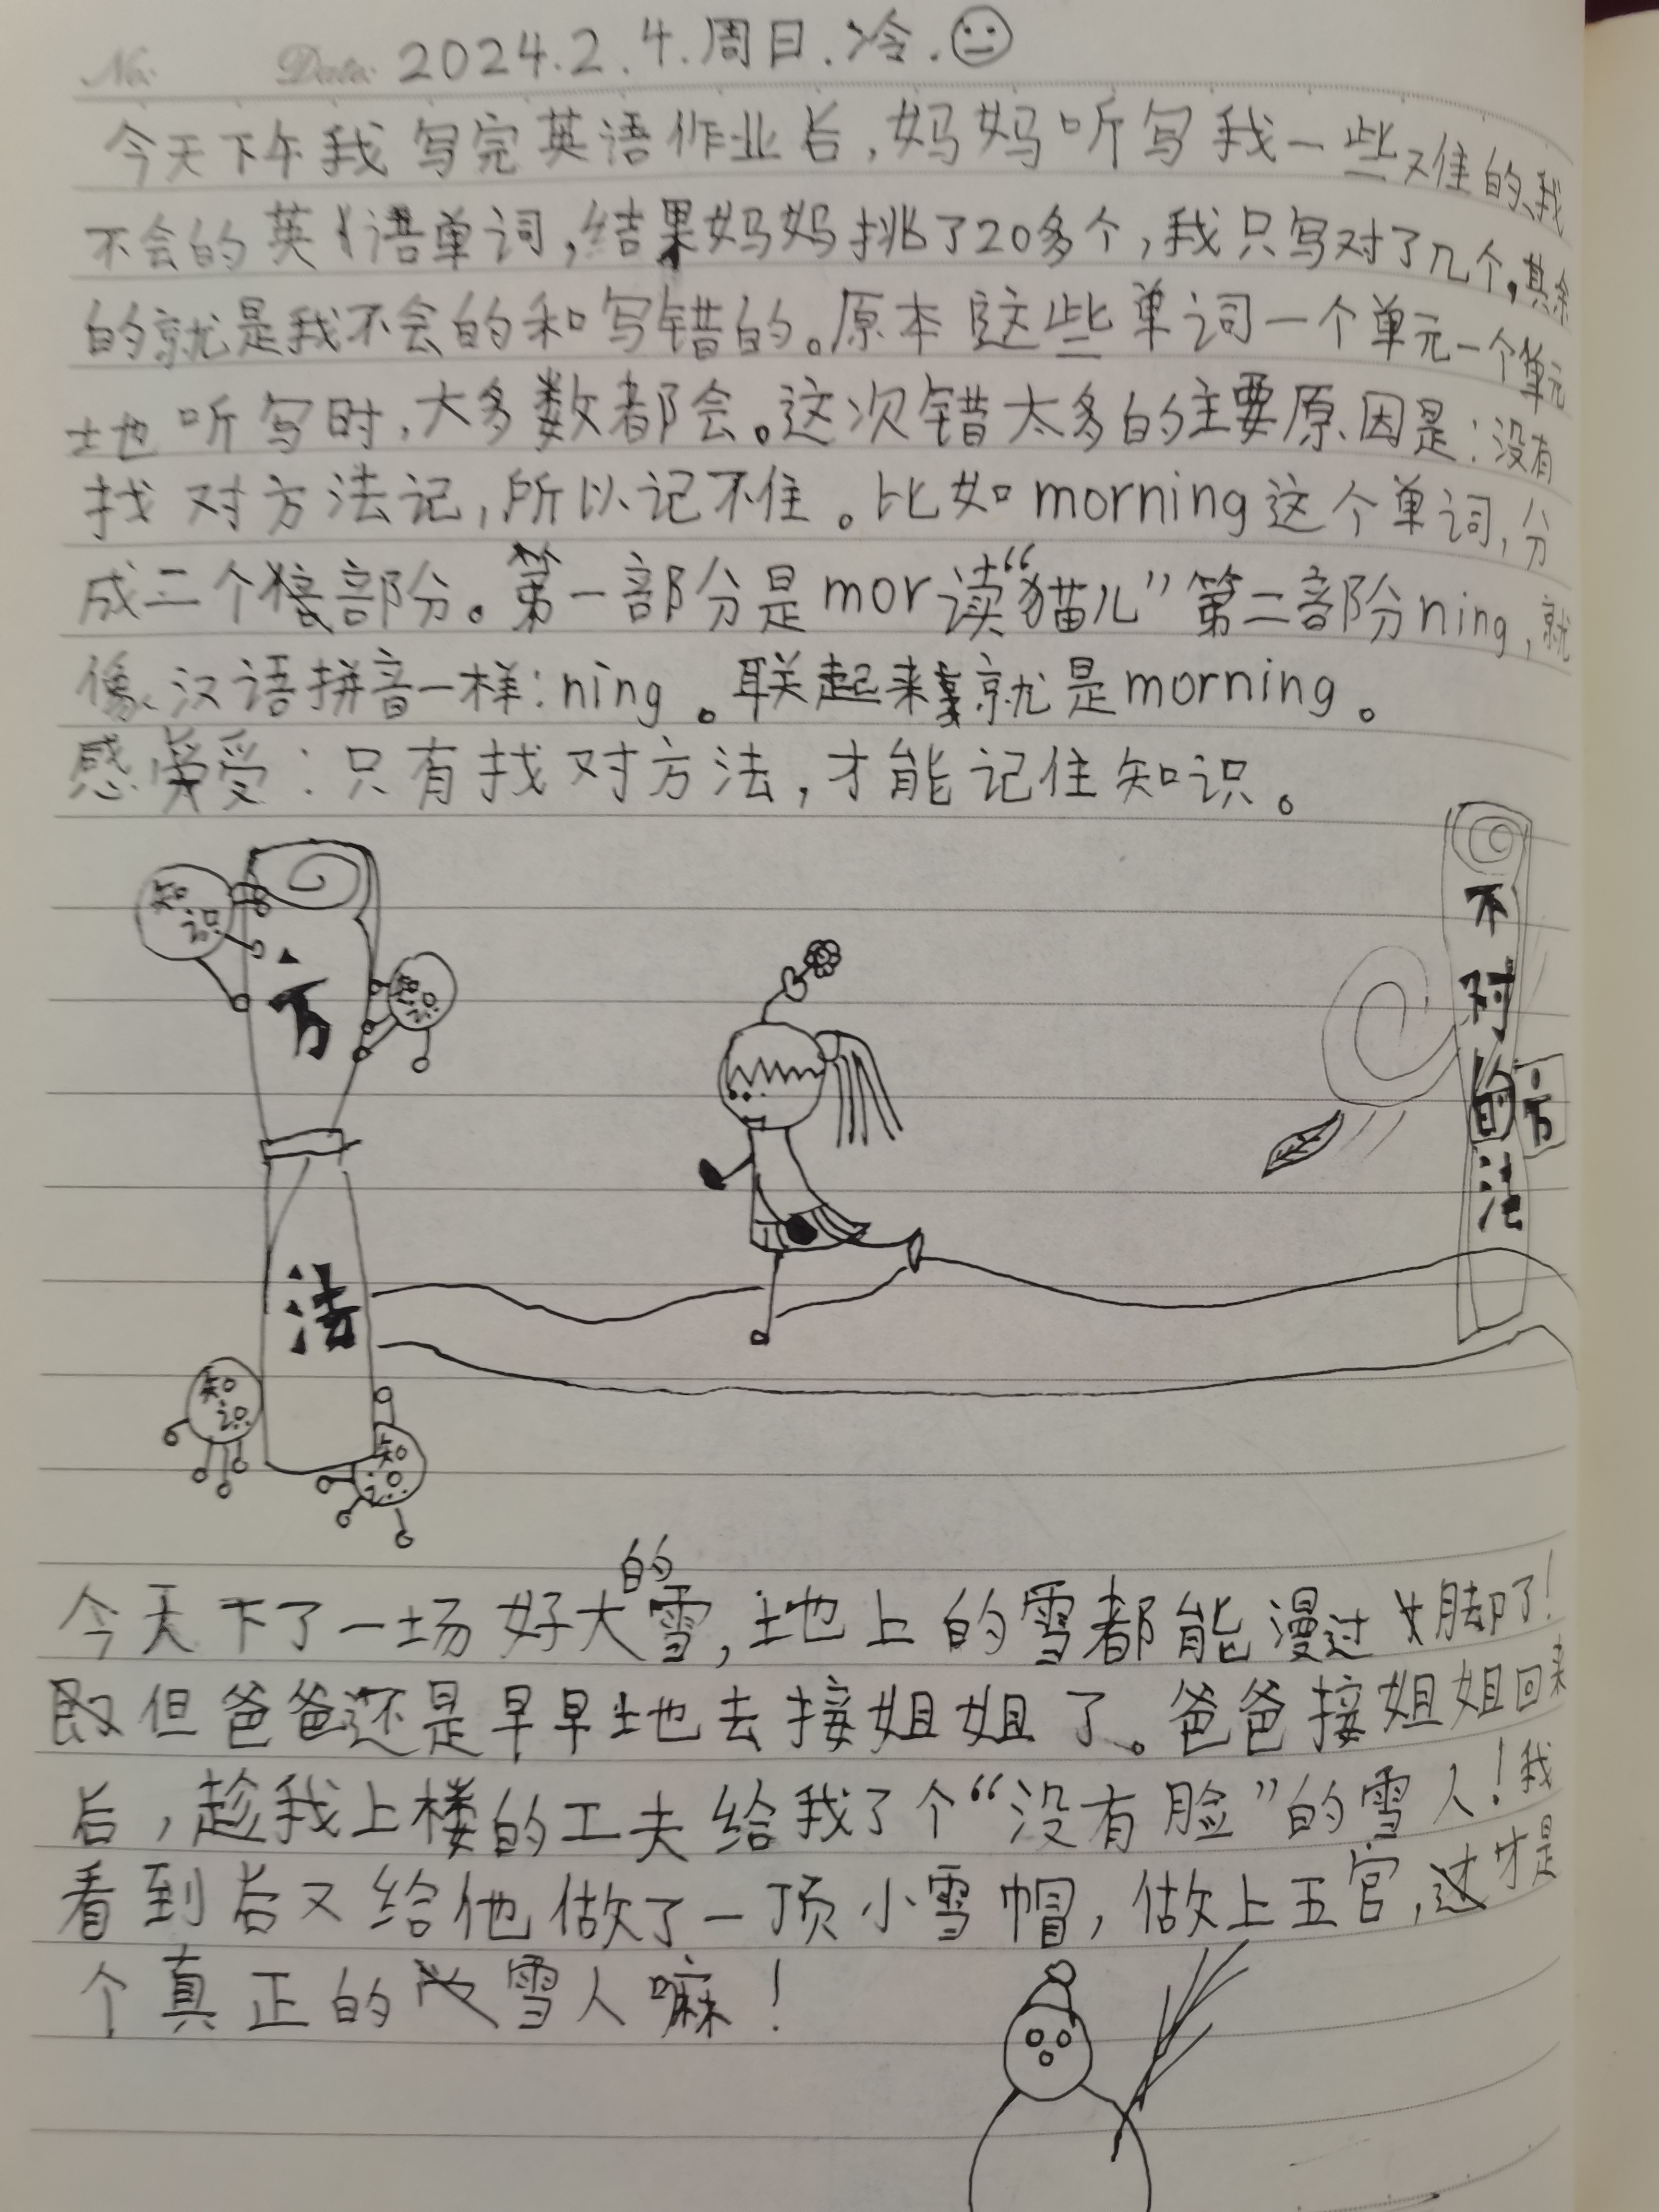 No: Date: 2024.2.4.周日.冷.
今天下午我写完英语作业后,妈妈听写我一些难的、我
不会的英语单词,结果妈妈挑了20多个,我只写对了几个,其余
的就是我不会的和写错的。原本这些单词一个单元一个单元
地听写时,大多数都会。这次错太多的主要原因是:没有
找对方法记,所以记不住。比如morning这个单词,分
成二个部分。第一部分是mor读“猫儿”第二部分ning,就
像汉语拼音一样:ning。联起来就是morning。
感受:只有找对方法,才能记住知识。
知识
方
知识
法
知识
知识
不对的方法
今天下了一场好大的雪,地上的雪都能漫过脚了!
但爸爸还是早早地去接姐姐了。爸爸接姐姐回来
后,趁我上楼的工夫给我了个“没有脸”的雪人!我
看到后又给他做了一顶小雪帽,做上五官,这才是
个真正的雪人嘛!